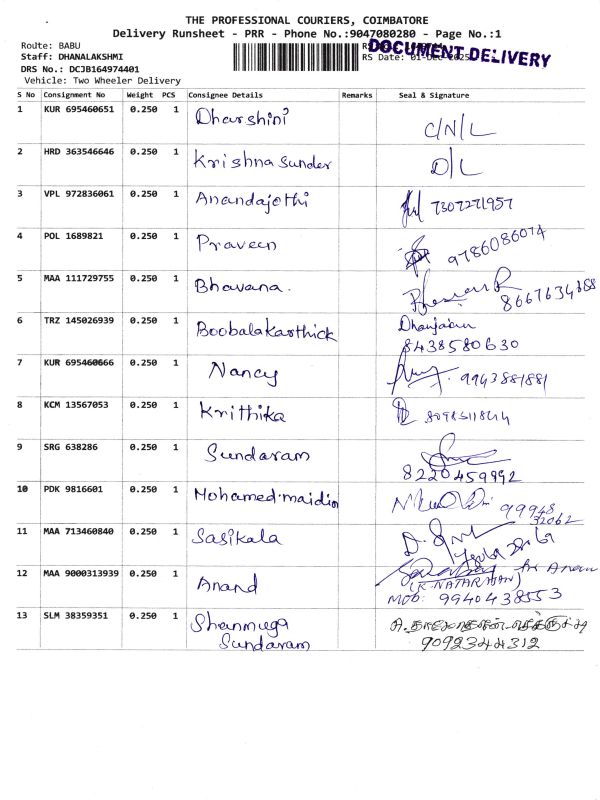 THE PROFESSIONAL COURIERS, COIMBATORE
Delivery Runsheet - PRR - Phone No.:9047080280 - Page No.:1
Route: BABU
Staff: DHANALAKSHMI
DRS No.: DCJB164974401
Vehicle: Two Wheeler Delivery
RS Date: 01-Dec-2025
DOCUMENT DELIVERY
S No Consignment No Weight PCS Consignee Details Remarks Seal & Signature
1 KUR 695460651 0.250 1 Dharshini C/N/L
2 HRD 363546646 0.250 1 Krishna Sunder D/L
3 VPL 972836061 0.250 1 Anandajothi 7307271957
4 POL 1689821 0.250 1 Praveen 9786086074
5 MAA 111729755 0.250 1 Bhavana. 8667634888
6 TRZ 145026939 0.250 1 Boobalakarthick
8438580630
7 KUR 695460666 0.250 1 Nancy 9943881881
8 KCM 13567053 0.250 1 Krithika
9 SRG 638286 0.250 1 Sundaram
8220459992
10 PDK 9816601 0.250 1 Mohamed.maidin 99948
32062
11 MAA 713460840 0.250 1 Sasikala
12 MAA 9000313939 0.250 1 Anand
(K.NATARAJAN)
MOB: 9940438553
13 SLM 38359351 0.250 1 Shanmuga
Sundaram 9092344312